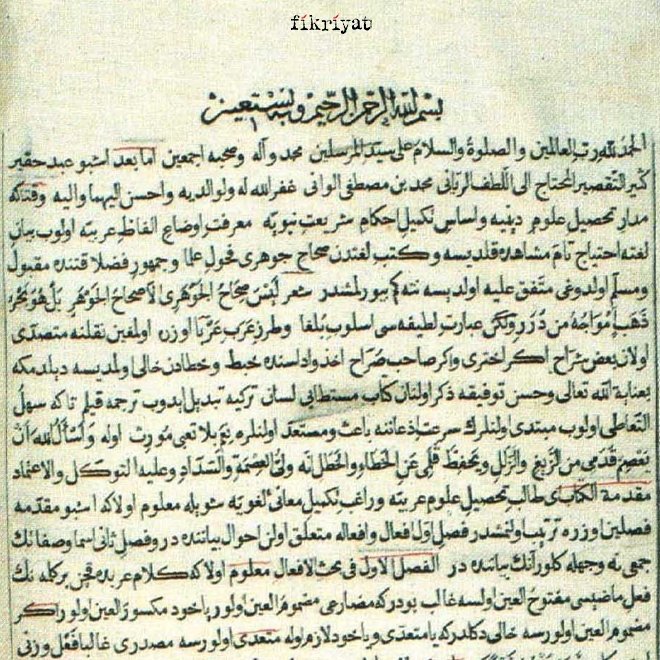 fikriyat
بسم الله الرحمن الرحيم وبه نستعين
الحمد لله رب العالمين والصلوة والسلام على سيد المرسلين محمد وآله وصحبه اجمعين اما بعد اشبو عبد حقير
كثير التقصير المحتاج الى اللطف الربانى محمد بن مصطفى الوانى غفر الله له ولوالديه واحسن اليهما واليه وقتاكه
مدار تحصيل علوم دينيه واساس تكميل احكام شريعت نبويه معرفت اوضاع الفاظ عربيه اولوب بيان
لغته احتياج تام مشاهده قلديسه وكتب لغتدن صحاح جوهرى فحول علما وجمهور فضلا قتنده مقبول
ومسلم اولدوغى متفق عليه اولديسه نته كم بيورلمشدر شعر ليس صحاح الجوهرى الا صحاح الجوهر بل هو بحر
ذهب امواجه من درر ولكن عبارت لطيفه سى اسلوب بلغا وطرز عرب عربا اوزره اولمغين نقلنه متصدى
اولان بعض شراح اكر اخترى واكر صاحب صراح اخذ واداسنده خبط وخطادن خالى اولمديسه ديلدمكه
بعناية الله تعالى وحسن توفيقه ذكر اولنان كتاب مستطابى لسان تركيه تبديل ايدوب ترجمه قيلم تاكه سهل
التعاطى اولوب مبتدى اولنلرك سرعت اذعاننه باعث ومستعد اولنلره نعم بلا تعبى مورث اوله واسأل الله ان
يعصم قدمى من الزيغ والزلل ويحفظ قلمى عن الخطاء والخطل انه ولى العصمة والسداد وعليه التوكل والاعتماد
مقدمة الكتاب اى طالب تحصيل علوم عربيه وراغب تكميل معانئ لغويه شويله معلوم اولاكه اشبو مقدمه
فصلين اوزره ترتيب اولنمشدر فصل اول افعال وافعاله متعلق اولن احوال بياننده در وفصل ثانى اسما وصفاتك
جمعى نه وجهله كلور آنك بياننده در الفصل الاول فى بحث الافعال معلوم اولاكه كلام عربده قچن بر كلمه نك
فعل ماضيسى مفتوح العين اولسه غالب بودركه مضارعى مضموم العين اولور ياخود مكسور العين اولور واكر
مضموم العين اولورسه خالى دكلدركه يا متعدى ويا خود لازم اوله متعدى اولورسه مصدرى غالبا فعل وزنى